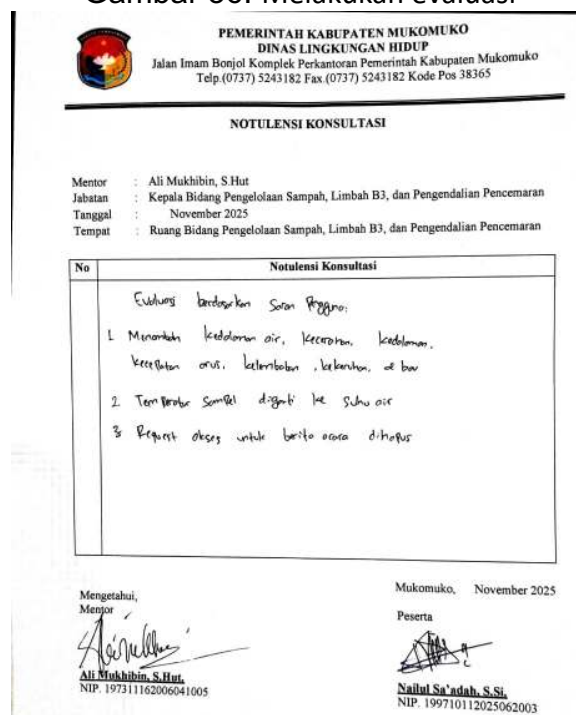 Gambar 60. Melakukan evaluasi
PEMERINTAH KABUPATEN MUKOMUKO
DINAS LINGKUNGAN HIDUP
Jalan Imam Bonjol Komplek Perkantoran Pemerintah Kabupaten Mukomuko
Telp.(0737) 5243182 Fax.(0737) 5243182 Kode Pos 38365
NOTULENSI KONSULTASI
Mentor : Ali Mukhibin, S.Hut
Jabatan : Kepala Bidang Pengelolaan Sampah, Limbah B3, dan Pengendalian Pencemaran
Tanggal : November 2025
Tempat : Ruang Bidang Pengelolaan Sampah, Limbah B3, dan Pengendalian Pencemaran
No Notulensi Konsultasi
Evaluasi berdasarkan Saran Pengguna:
1 Menambah kedalaman air, kecerahan, kedalaman,
kecepatan arus, kelembaban, kekeruhan, bau
2 Temperatur Sampel diganti ke Suhu air
3 Request akses untuk berita acara dihapus
Mengetahui,
Mentor
Ali Mukhibin, S.Hut.
NIP. 197311162006041005
Mukomuko, November 2025
Peserta
Nailul Sa'adah, S.Si.
NIP. 199710112025062003